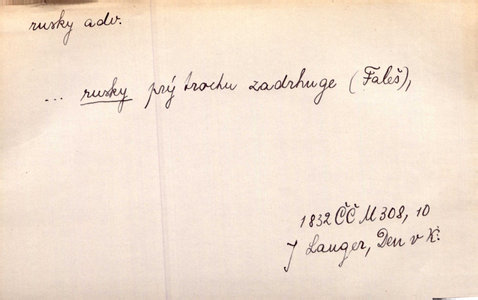 rusky adv.
... rusky prý trochu zadrhuge (Faleš),
1832 ČČM 308, 10
J Langer, Den v K.